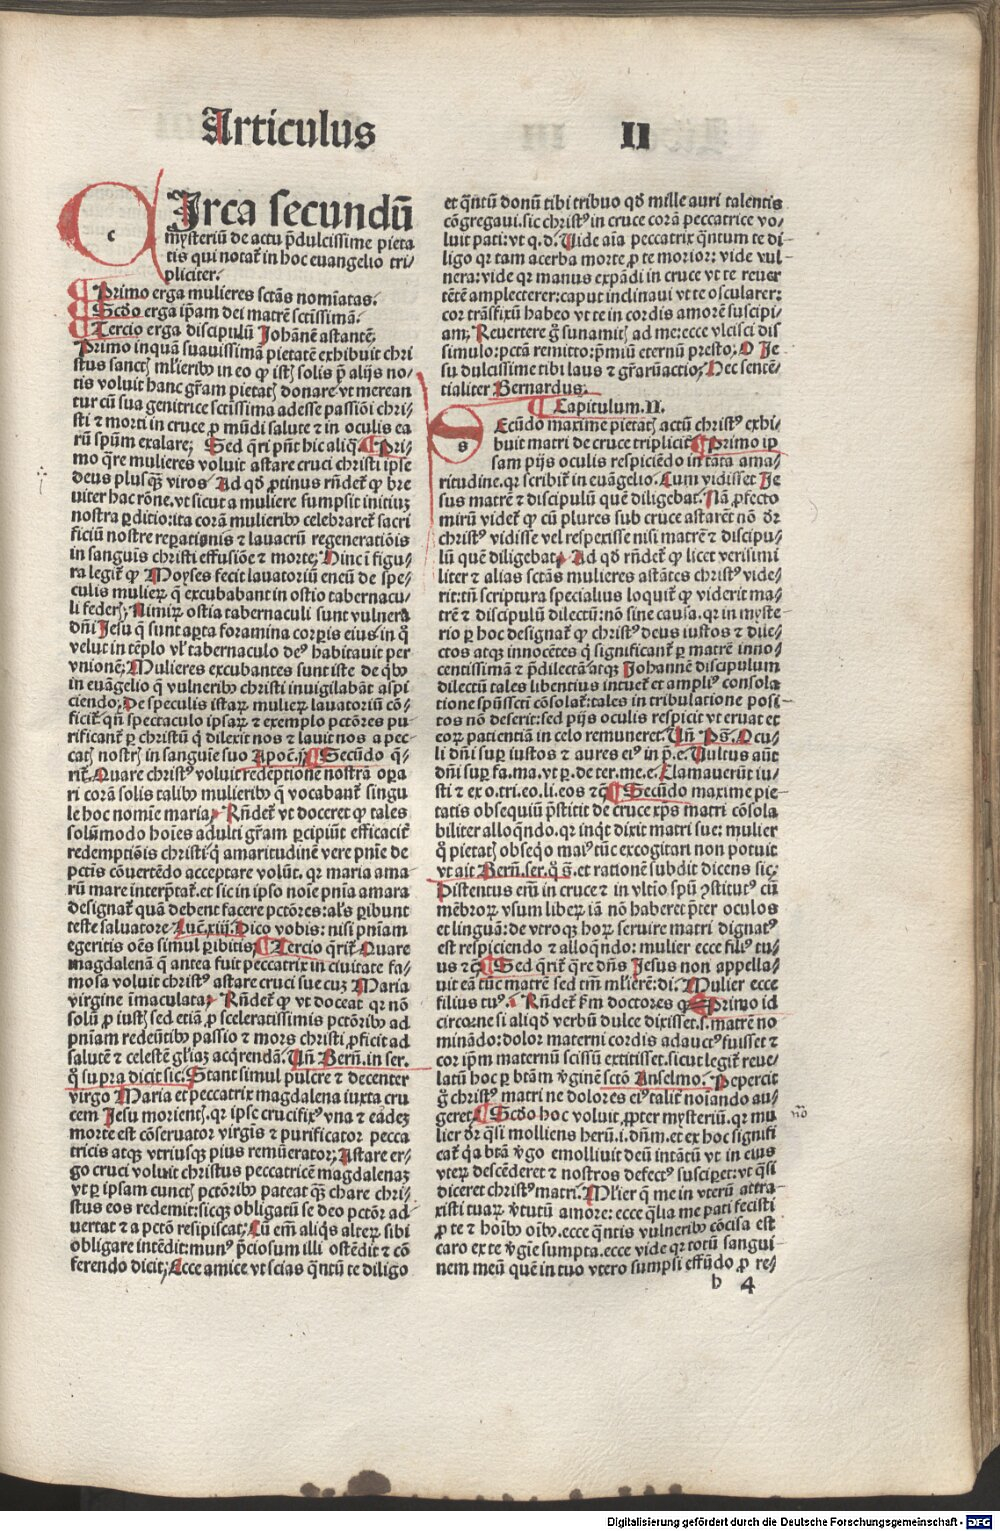 Articulus II
CIrca secundū
mysteriū de actu p̄dulcissime pieta
tis qui notat̄ in hoc euangelio tri⸗
pliciter.
Primo erga mulieres sctās nomīatas.
Scd̄o erga ip̄am dei matrē sctīssimā.
Tercio erga discipulū Johānē astantē.
Primo inquā suauissimā pietatē exhibuit chri
stus sanctꝭ mlīeribꝰ in eo ꝙ istꝭ solis p̄ alijs no⸗
tis voluit hanc gr̄am pietatꝭ donare vt merean
tur cū sua genitrice sctīssima adesse passiōi chri⸗
sti ⁊ morti in cruce ꝓ mūdi salute ⁊ in oculis ea
rū spūm exalare; Sed q̄ri pn̄t hic aliq̄. Pri⸗
mo q̄re mulieres voluit astare cruci christi ipse
deus plusqꝫ viros. Ad qd̄ ꝓtinus rn̄det̄ ꝙ bre
uiter hac rōne. vt sicut a muliere sumpsit initiuꝫ
nostra ꝑditio: ita corā mulieribꝰ celebraret̄ sacri
ficiū nostre reꝑationis ⁊ lauacrū regeneratiōis
in sanguīs christi effusiōe ⁊ morte; Hinc ī figu⸗
ra legit̄ ꝙ Moyses fecit lauatoriū eneū de spe⸗
culis mulieꝝ q̄ excubabant in ostio tabernacu⸗
li federꝭ. Nimiꝝ ostia tabernaculi sunt vulnera
dn̄i Jesu q̄ sunt aꝑta foramina corꝑis eius in q̄
velut in tēplo vl̓ tabernaculo deꝰ habitauit per
vnionē; Mulieres excubantes sunt iste de qͥbꝰ
in euāgelio q̄ vulneribꝰ christi inuigilabāt aspi
ciendo; De speculis istaꝝ mulieꝝ lauatoriū cō⸗
ficit̄ qn̄ spectaculo ipsaꝝ ⁊ exemplo pctōres pu⸗
rificant̄ ꝑ christū q̄ dilexit nos ⁊ lauit nos a pec⸗
catꝭ nostrꝭ in sanguīe suo Apoc̄.j. Secūdo q̄⸗
rit̄. Quare christꝰ voluit redēptionē nostrā oꝑa
ri corā solis talibꝰ mulieribꝰ q̄ vocabant̄ singu
le hoc nomīe maria. Rn̄det̄ vt doceret ꝙ tales
solūmodo hoīes adulti gr̄am ꝑcipiūt efficacit̄
redemptiōis christi q̄ amaritudinē vere pnīe de
pctīs cōuertēdo acceptare volūt. qꝛ maria ama⸗
rū mare interp̄tat̄. et sic in ipso noīe pnīa amara
designat̄ quā debent facere pctōres: als̄ ꝑibunt
teste saluatore Luc̄.xiij. Dico vobis: nisi pnīam
egeritis oēs simul ꝑibitis; Tercio q̄rit̄. Quare
magdalenā q̄ antea fuit peccatrix in ciuitate fa⸗
mosa voluit christꝰ astare cruci sue cuꝫ Maria
virgine īmaculata. Rn̄det̄ ꝙ vt doceat qꝛ nō
solū ꝓ iustꝭ sed etiā ꝓ sceleratissimis pctōribꝰ ad
pnīam redeūtibꝰ passio ⁊ mors christi ꝓficit ad
salutē ⁊ celestē gl̄iaꝫ acq̄rendā. Vn̄ Bern̄. in ser.
q̄ supra dicit sic. Stant simul pulcre ⁊ decenter
virgo Maria et peccatrix magdalena iuxta cru
cem Jesu morientꝭ. qꝛ ipse crucifixꝰ vna ⁊ eādeꝫ
morte est cōseruator virgīs ⁊ purificator pecca
tricis atqꝫ vtriusqꝫ pius remūerator; Astare er⸗
go cruci voluit christus peccatricē magdalenaꝫ
vt ꝑ ipsam cunctꝭ pctōribꝰ pateat qꝫ̄ chare chri⸗
stus eos redemit: sicqꝫ obligatū se deo pctōr ad⸗
uertat ⁊ a pctō resipiscat; Cū em̄ aliqͥs alteꝝ sibi
obligare intēdit: munꝰ p̄ciosum illi ostēdit ⁊ cō
ferendo dicit; Ecce amice vt scias q̄ntū te diligo
et q̄ntū donū tibi tribuo qd̄ mille auri talentis
cōgregaui. sic christꝰ in cruce corā peccatrice vo⸗
luit pati: vt q.d. Vide aīa peccatrix q̄ntum te di⸗
ligo qꝛ tam acerba morte ꝓ te morior: vide vul⸗
nera: vide qꝛ manus expādi in cruce vt te reuer
tētē amplecterer: caput inclinaui vt te oscularer:
cor trāsfixū habeo vt te in cordis amorē suscipi⸗
am; Reuertere g̊ sunamitꝭ ad me: ecce vlcisci dis
simulo: pctā remitto: p̄miū eternū presto; O Je⸗
su dulcissime tibi laus ⁊ gr̄arū actio; Hec sentē⸗
tialiter Bernardus.
Capitulum.II.
SEcūdo maxime pietatꝭ actū christꝰ exhi⸗
buit matri de cruce tripliciť Primo ip
sam pijs oculis respiciēdo in tāta ama⸗
ritudine. qꝛ scribit̄ in euāgelio. Cum vidisset Je
sus matrē ⁊ discipulū quē diligebat. Nā ꝓfecto
mirū videt̄ ꝙ cū plures sub cruce astarēt nō dr̄
christꝰ vidisse vel respexisse nisi matrē ⁊ discipu⸗
lū quē diligebat. Ad qd̄ rn̄det̄ ꝙ licet verisimi
liter ⁊ alias sctās mulieres astātes christꝰ vide⸗
rit: tn̄ scriptura specialius loquit̄ ꝙ viderit ma⸗
trē ⁊ discipulū dilectū: nō sine causa. qꝛ in myste⸗
rio ꝑ hoc designat̄ ꝙ christꝰ deus iustos ⁊ dile⸗
ctos atqꝫ innocētes q̄ significant̄ ꝑ matrē inno⸗
centissimā ⁊ p̄dilectā atqꝫ Johannē discipulum
dilectū tales libentius intuet̄ et ampliꝰ consola
tione spūssctī cōsolat̄: tales in tribulatione posi⸗
tos nō deserit: sed pijs oculis respicit vt eruat et
eoꝝ patientiā in celo remuneret. Vn̄ Ps̄. Ocu⸗
li dn̄i suꝑ iustos ⁊ aures eiꝰ in p̄.e. Vultus aūt
dn̄i suꝑ fa.ma.vt ꝑ.de ter.me.e. Clamauerūt iu⸗
sti ⁊ ex o.tri.eo.li.eos ⁊c̄. Secūdo maxime pie⸗
tatis obsequiū p̄stitit de cruce xp̄s matri cōsola
biliter alloq̄ndo. qꝛ inqͥt dixit matri sue: mulier
q̄ pietatꝭ obseqͥo maiꝰ tūc excogitari non potuit
vt ait Bern̄. ser. q̊ s̄. et rationē subdit dicens sic;
Distentus em̄ in cruce ⁊ in vltio spū ꝯstitutꝰ cū
mēbroꝝ vsum libeꝝ iā nō haberet p̄ter oculos
et linguā: de vtroqꝫ hoꝝ seruire matri dignatꝰ
est respiciendo ⁊ alloq̄ndo: mulier ecce filiꝰ tu⸗
us ⁊c̄. Sed q̄rit̄ q̄re dn̄s Jesus non appella⸗
uit eā tūc matrē sed tm̄ mlīerē: dī. Mulier ecce
filius tuꝰ. Rn̄det̄ fm̄ doctores ꝙ Primo id
circo: ne si aliqd̄ verbū dulce dixisset. s. matrē no
minādo: dolor materni cordis adauctꝰ fuisset ⁊
cor ip̄m maternū scissū extitisset. sicut legit̄ reue⸗
latū hoc ꝑ btām v̓ginē sctō Anselmo. Pepercit
g̊ christꝰ matri ne dolores eiꝰ talit̄ noīando au⸗
geret. Scd̄o hoc voluit ꝓpter mysteriū. qꝛ mu
lier dr̄ qͣsi molliens herū. i. dn̄m. et ex hoc signifi
cat̄ qͣ btā v̓go emolliuit deū intātū vt in eius
vteꝝ descēderet ⁊ nostros defectꝰ susciꝑet: vt qͣsi
diceret christꝰ matri. Mlīer q̄ me in vterū attra⸗
xisti tuaꝝ v̓tutū amore: ecce q̄lia me pati fecisti
ꝓ te ⁊ hoībꝰ oībꝰ. ecce q̄ntis vulneribꝰ cōcisa est
caro ex te v̓gīe sumpta. ecce vide qꝛ totū sangui⸗
nem meū quē in tuo vtero sumpsi effūdo ꝓ re⸗
b 4
Digitalisierung gefördert durch die Deutsche Forschungsgemeinschaft - DFG